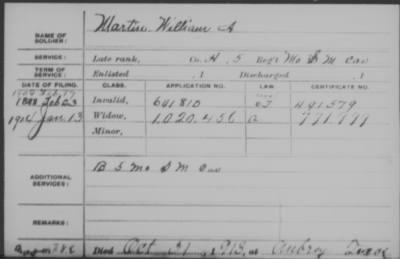 NAME OF SOLDIER:
Martin William A
SERVICE:
Late rank,
Co. H, 5 Reg't Mo S M Cav
TERM OF SERVICE:
Enlisted , 1
Discharged , 1
DATE OF FILING.
CLASS.
APPLICATION NO.
LAW.
CERTIFICATE NO.
Invalid,
641810
491579
1914 Jan 13
Widow,
1,020,456
a
771,777
Minor,
ADDITIONAL SERVICES:
B 5 Mo S M Cav
REMARKS:
Died Oct 31, 1913, at Aubrey Texas